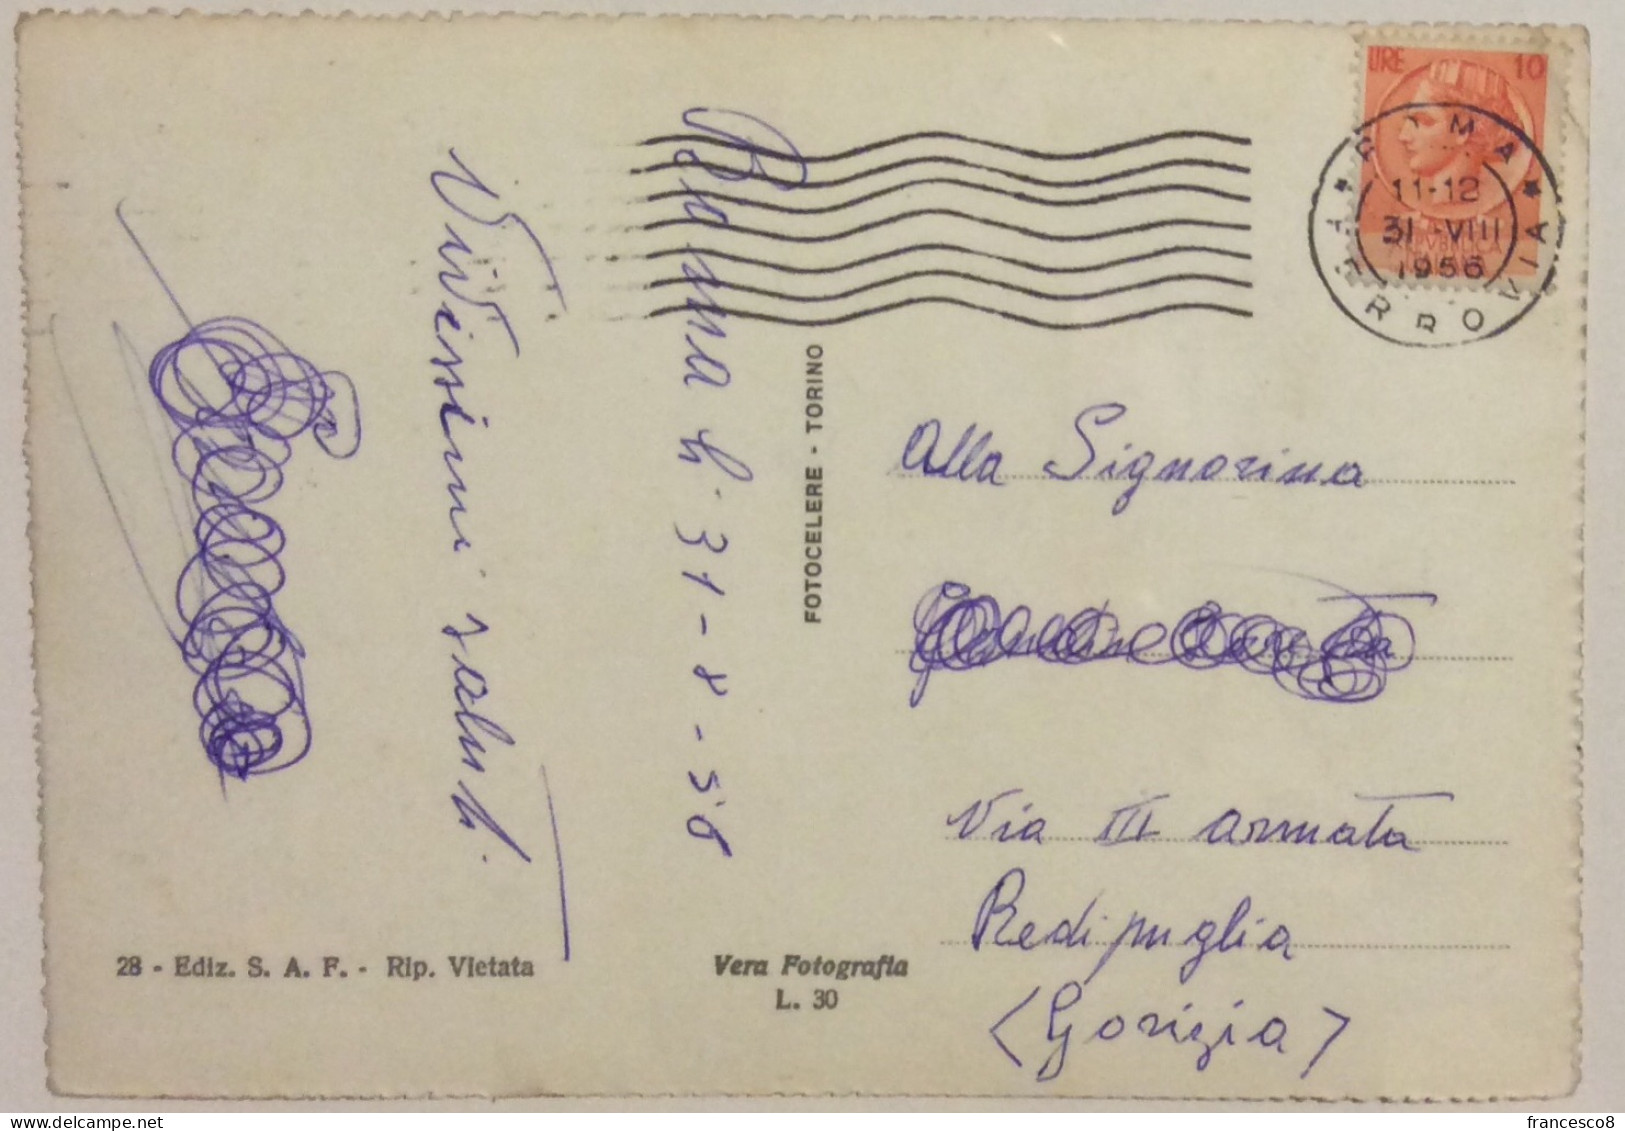 Roma li 31-8-56
Vivissimi saluti
28 - Ediz. S. A. F. - Rip. Vietata
Vera Fotografia
L. 30
FOTOCELERE - TORINO
LIRE 10
ROMA
FERROVIA
11-12
31-VIII
1956
Alla Signorina
Via III armata
Redipuglia
(Gorizia)
francesco8